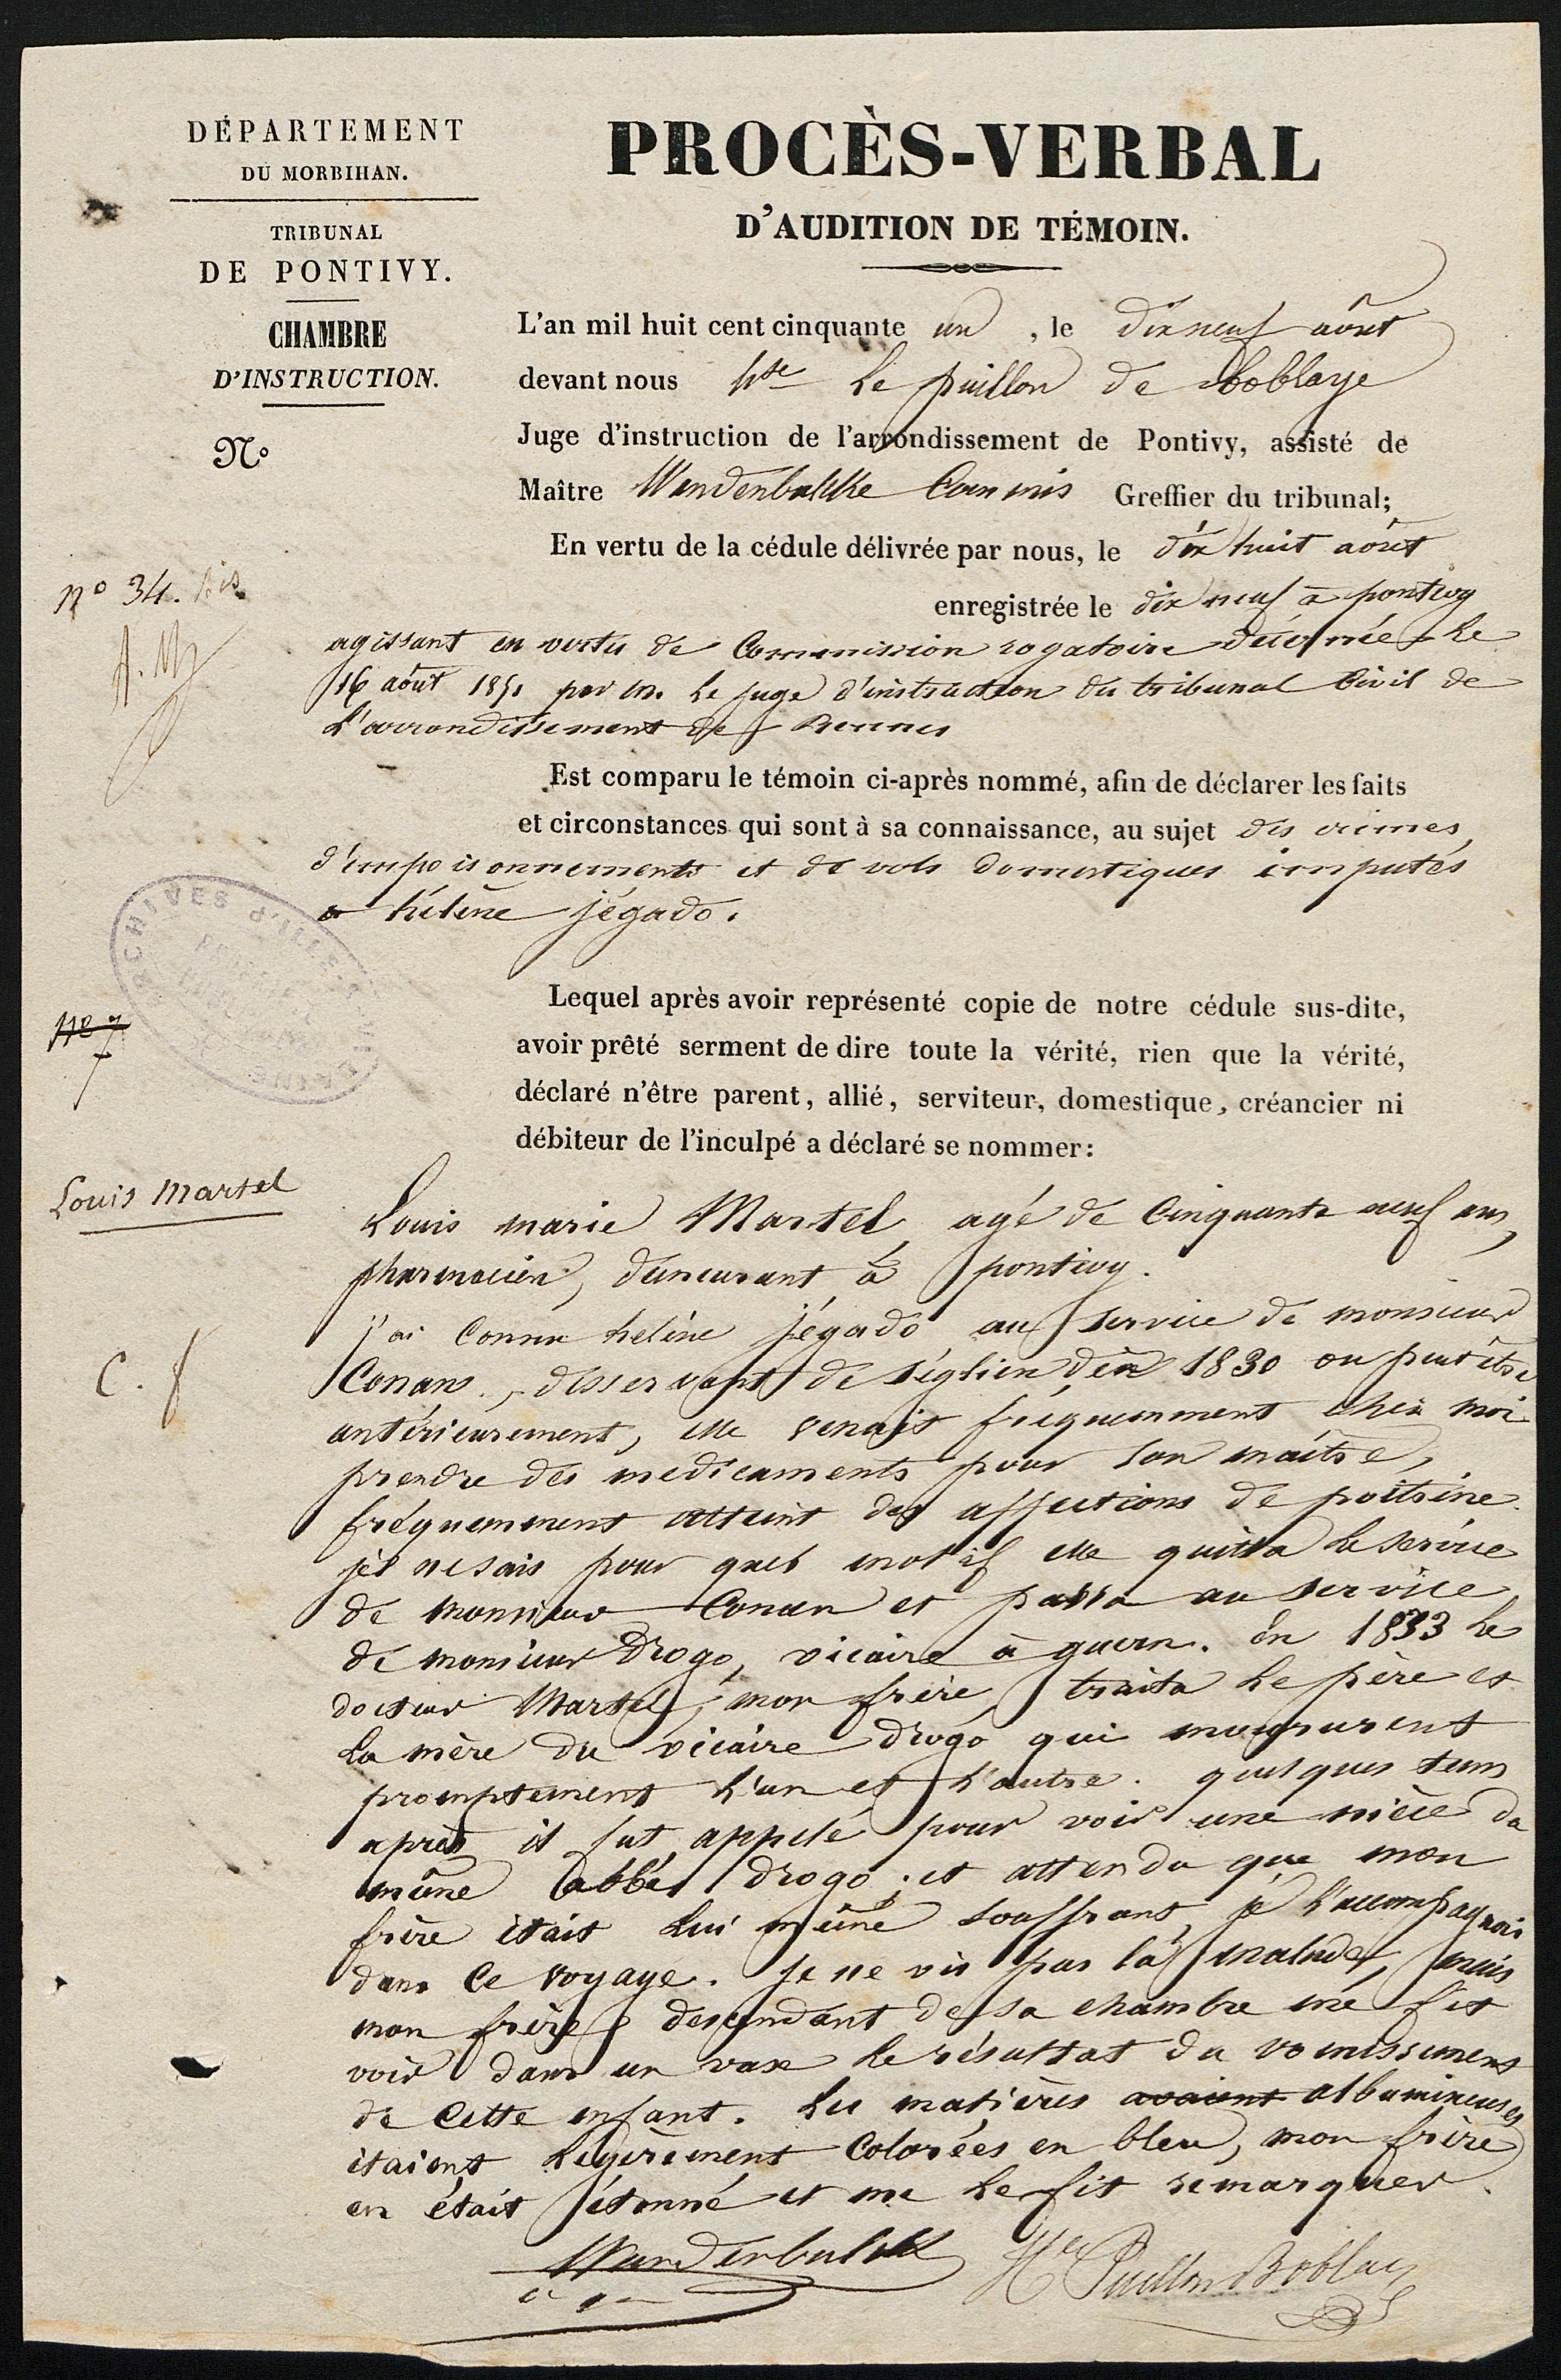 DÉPARTEMENT
DU MORBIHAN.
TRIBUNAL
DE PONTIVY.
CHAMBRE
D'INSTRUCTION.
No
PROCÈS-VERBAL
D'AUDITION DE TÉMOIN.
L'an mil huit cent cinquante un, le dix neuf août
devant nous hte Le puillon de Boblaye
Juge d'instruction de l'arrondissement de Pontivy, assisté de
Maître Commis Greffier du tribunal;
En vertu de la cédule délivrée par nous, le dix huit août
enregistrée le dix neuf à pontivy
agissant en vertu de Commission rogatoire décernée le
16 août 1851 par m. le juge d'instruction du tribunal Civil de
L'arrondissement de Rennes
Est comparu le témoin ci-après nommé, afin de déclarer les faits
et circonstances qui sont à sa connaissance, au sujet des crimes
d'empoisonnements et de vols domestiques imputés
a hélène jégado.
Lequel après avoir représenté copie de notre cédule sus-dite,
avoir prêté serment de dire toute la vérité, rien que la vérité,
déclaré n'être parent, allié, serviteur, domestique, créancier ni
débiteur de l'inculpé a déclaré se nommer:
no 34. bis
ARCHIVES d'ILLE-
no 7
Louis Martel
C. f
Louis marie Martel, agé de Cinquante neuf ans,
pharmacien, demeurant à pontivy.
j'ai Connu heléne jégado au service de monsieur
Conan, desservant de séglien dès 1830 ou peut être
antérieurement, elle venait fréquemment chez moi
prendre des médicaments pour son maître,
fréquemment atteint des affections de poitrine.
je ne sais pour quel motif elle quitta le service
de monsieur Conan et passa au service
de monsieur Drogo, vicaire à guern. en 1833 le
docteur Martel, mon frère, traita le père et
la mère du vicaire drogo qui moururent
promptement l'un et l'autre. quelques tems
après il fut appelé pour voir une nièce du
même abbé drogo; et attendu que mon
frère était lui même souffrant, je l'accompagnais
dans ce voyage. je ne vis pas la malade, mais
mon frère descendant de sa chambre me fit
voir dans un vase le résultat du vomissement
de cette enfant. les matières avaient albumineuses
étaient légèrement colorées en bleu, mon frère
en était étonné et me le fit remarquer.
Hte Puillon Boblaye